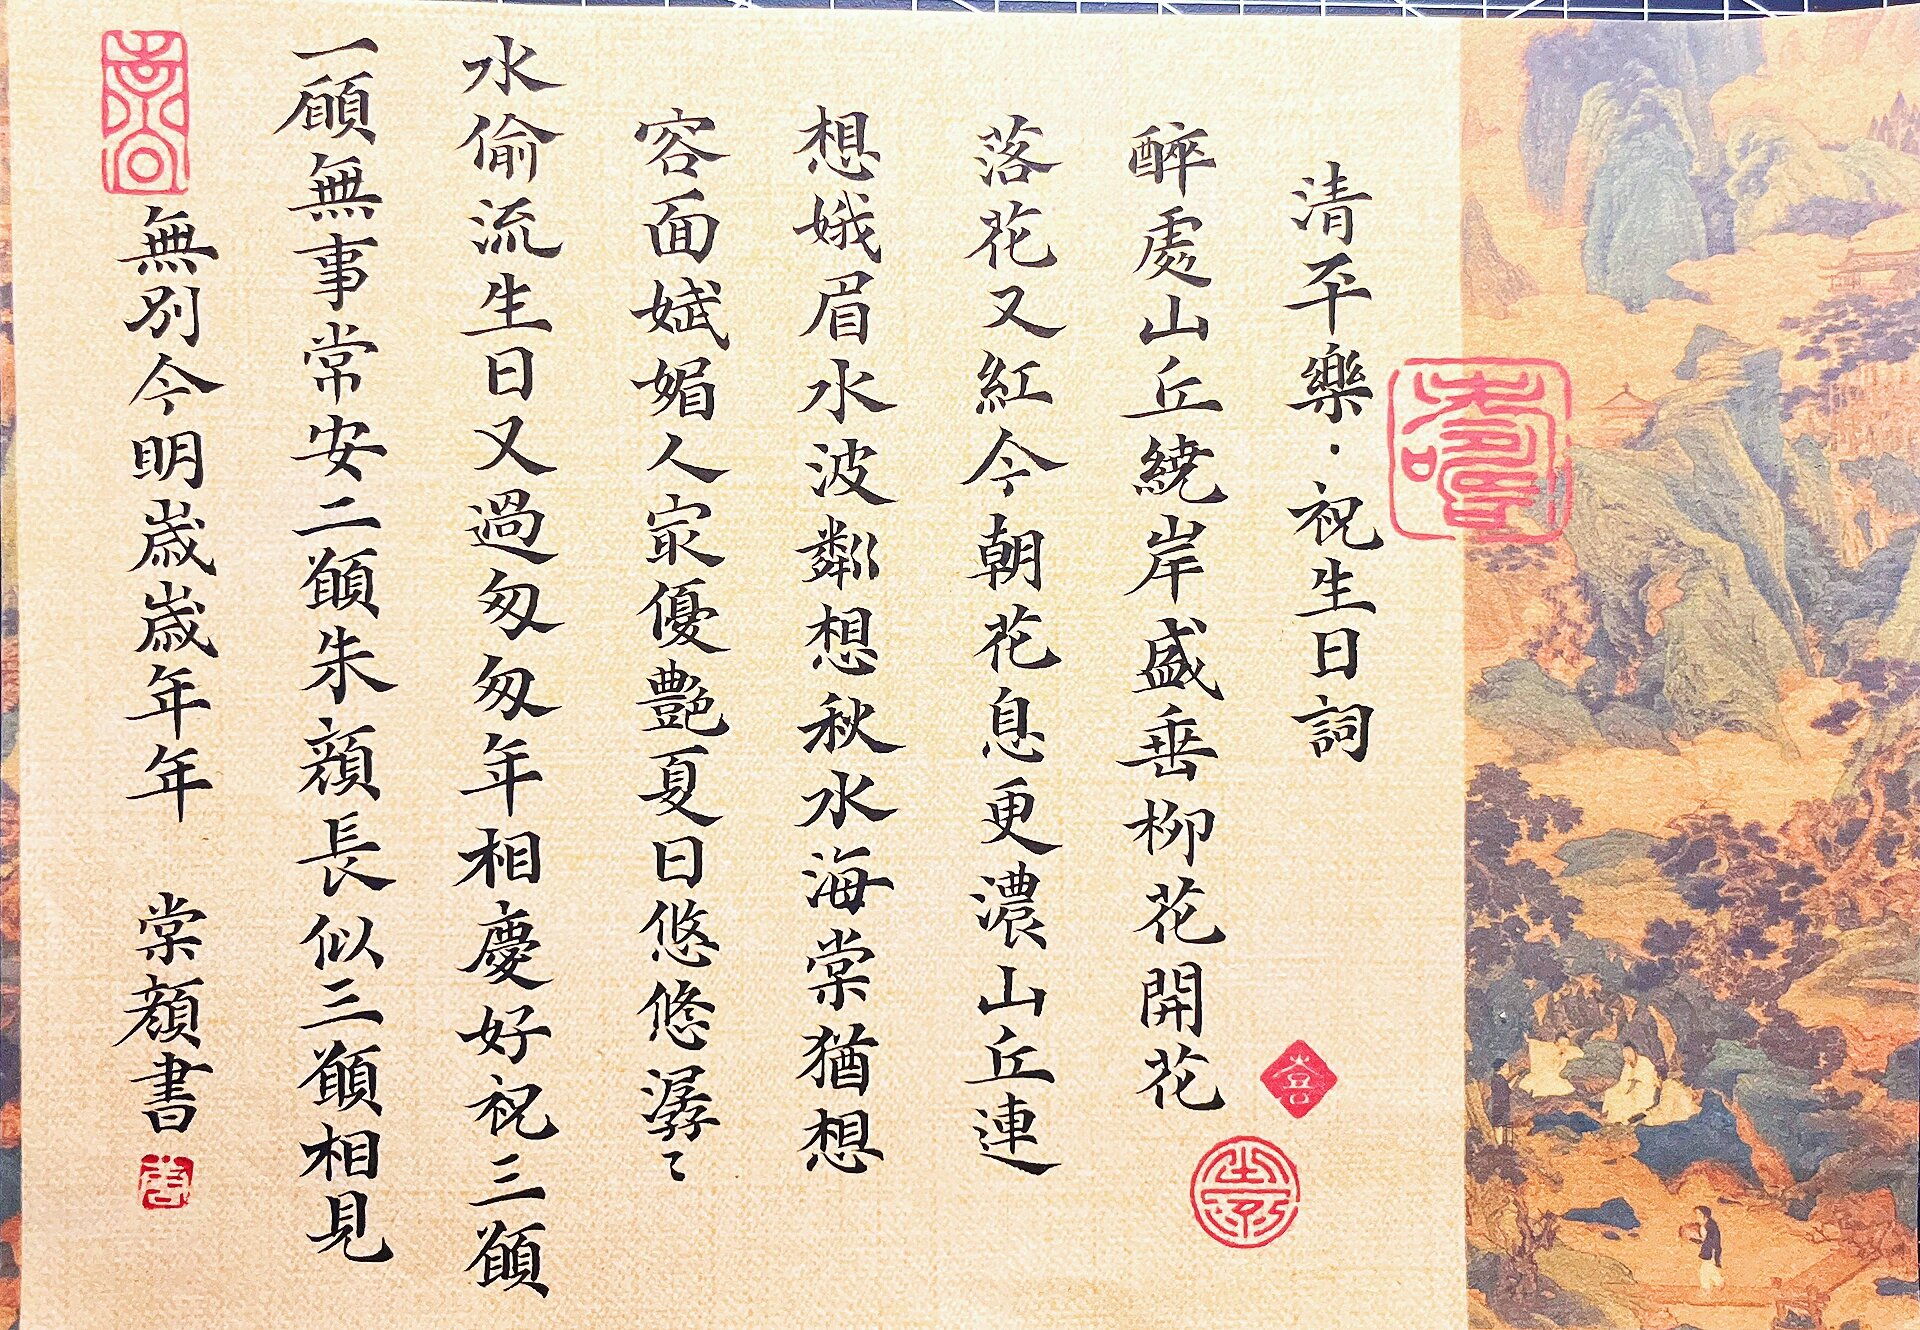 清平樂·祝生日詞
醉處山丘繞岸盛垂柳花開花
落花又紅今朝花息更濃山丘連
想娥眉水波粼想秋水海棠猶想
容面娬媚人冣優艷夏日悠悠潺〻
水偷流生日又過匆匆年相慶好祝三願
一願無事常安二願朱顏長似三願相見
無別今明歲歲年年 棠顏書